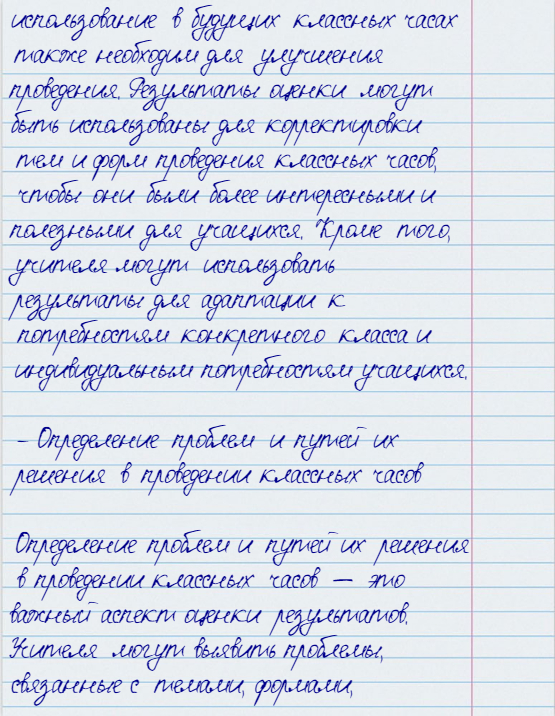 использование в будущих классных часах
также необходим для улучшения
проведения. Результаты оценки могут
быть использованы для корректировки
тем и форм проведения классных часов,
чтобы они были более интересными и
полезными для учащихся. Кроме того,
учителя могут использовать
результаты для адаптации к
потребностям конкретного класса и
индивидуальным потребностям учащихся.
- Определение проблем и путей их
решения в проведении классных часов
Определение проблем и путей их решения
в проведении классных часов — это
важный аспект оценки результатов.
Учителя могут выявить проблемы,
связанные с темами, формами,